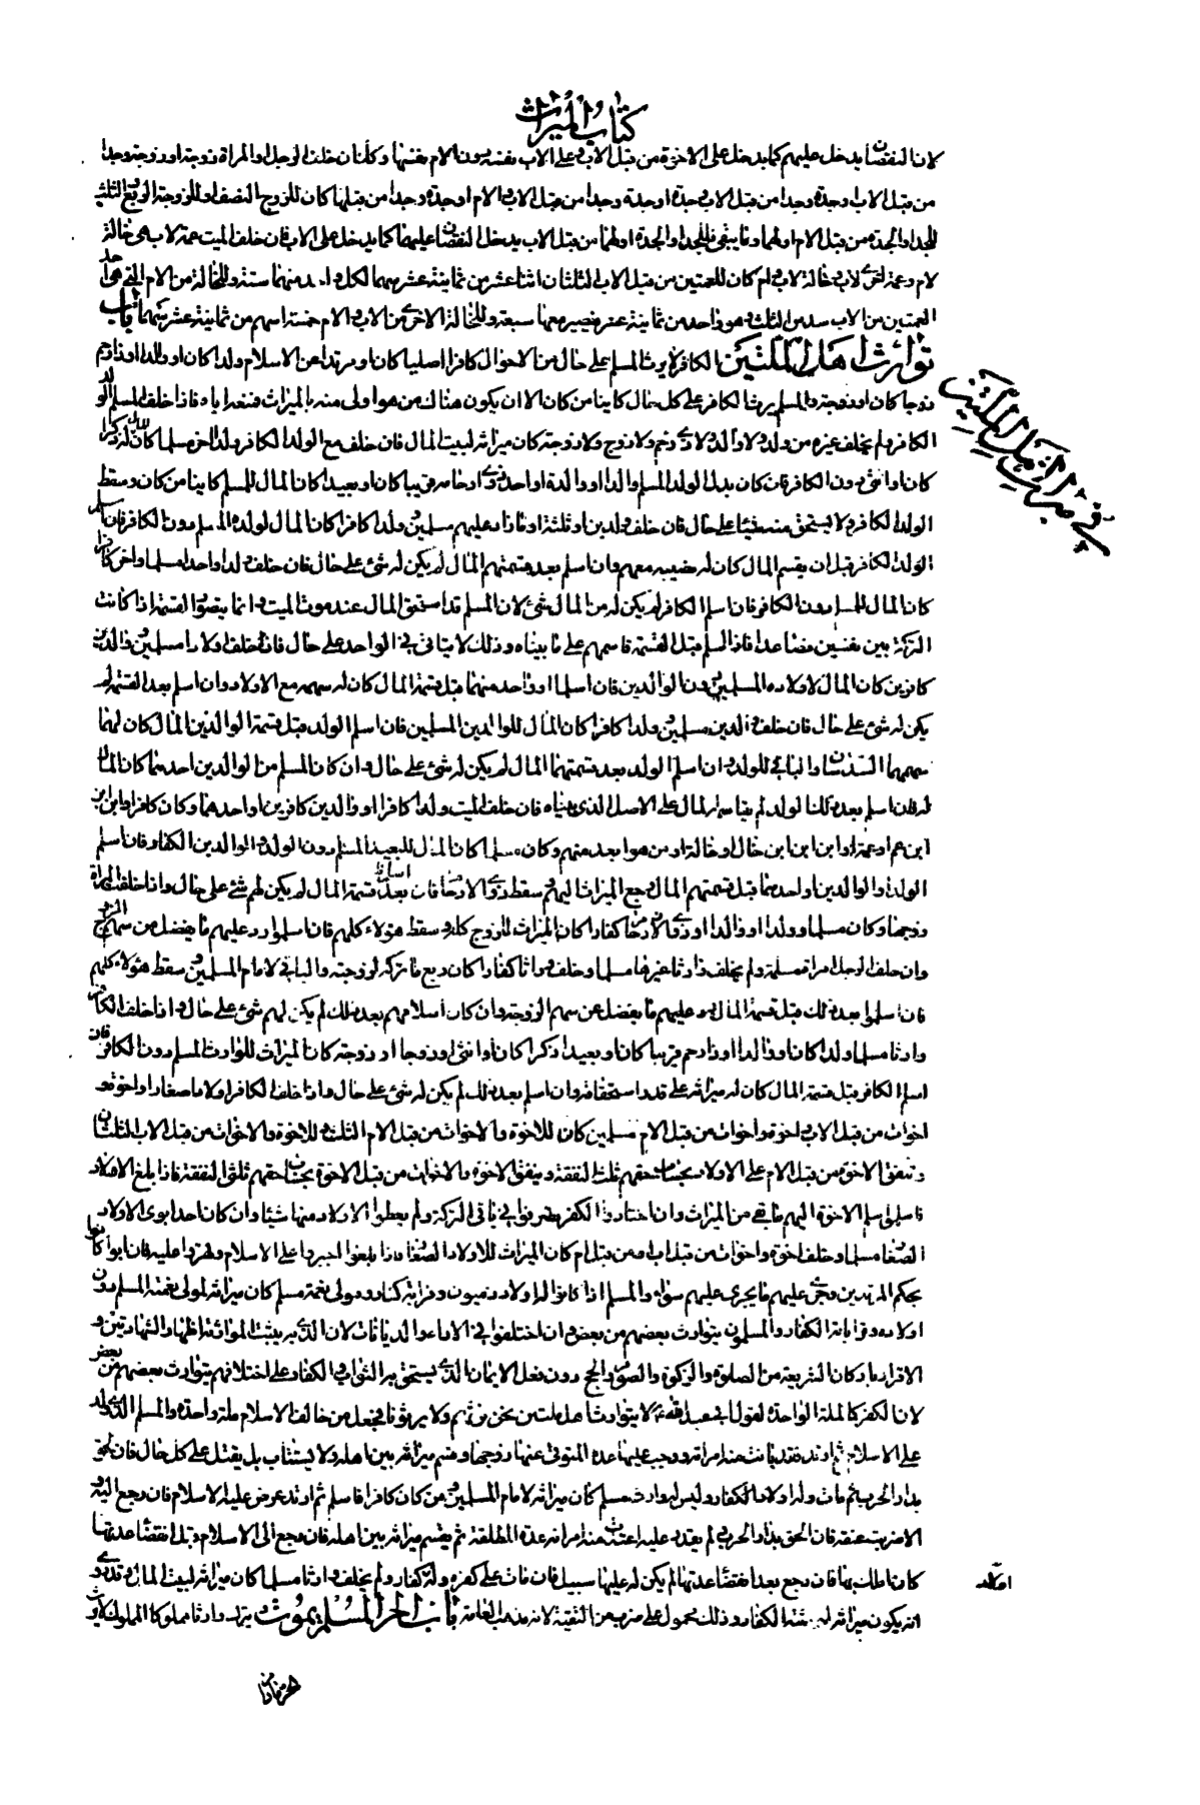 كتاب الميراث
لان النقصان يدخل عليهم كما يدخل على الاخوة من قبل الاب وعلى الاب نفسه دون الام نفسها وكذلك ان خلف الرجل او المراة زوجة او زوجا وجدا
من قبل الاب وجدة وجدا من قبل الاب وجدة او جدة وجدا من قبل الاب والام او جدة وجدا من قبلها كان للزوج النصف او للزوجة الربع والثلث
للجد او الجدة من قبل الام او لهما وما يبقى للجد او الجدة او لهما من قبل الاب يدخل النقصان عليهما كما يدخل على الاب فان خلف الميت عمة لاب هى خالة
لام وعمة اخرى لاب وخالة لاب وام كان للعمتين من قبل الاب الثلثان اثنا عشر من ثمانية عشر سهما لكل واحدة منهما ستة وللخالة من الام التي هي احد
العمتين من الاب سدس الثلث وهو واحد من ثمانية عشر فيصير معها سبعة وللخالة الاخرى من الاب والام خمسة اسهم من ثمانية عشر سهما باب
توارث اهل الملتين الكافر لا يرث المسلم على حال من الاحوال كافرا اصليا كان او مرتدا عن الاسلام ولدا كان او والدا او ذا رحم
زوجا كان او زوجة والمسلم يرث الكافر على كل حال كاينا من كان الا ان يكون هناك من هو اولى منه بالميراث فاذا خلف المسلم الولد
الكافر ولم يخلف غيره من ولد ولا والد ولا ذى رحم ولا زوج ولا زوجة كان ميراثه لبيت المال فان خلف مع الولد الكافر ولدا اخر مسلما كان المال له ذكرا
كان او انثى دون الكافر فان كان بدل الولد المسلم والدا او والدة او احد ذوى ارحامه قريبا كان او بعيدا كان المال للمسلم كاينا من كان وسقط
الولد الكافر ولا يستحق منه شيئا على حال فان خلف ولدين او ثلثة او ما زاد عليهم مسلمين وولدا كافرا كان المال لولده المسلم دون الكافر فان اسلم
الولد الكافر قبل ان يقسم المال كان له نصيبه معهم وان اسلم بعد قسمتهم المال لم يكن له شئ على حال فان خلف ولدا واحدا مسلما واخر كافرا
كان المال للمسلم دون الكافر فان اسلم الكافر لم يكن له من المال شئ لان المسلم قد استحق المال عند موت الميت وانما يتصور القسمة اذا كانت
التركة بين نفسين فصاعدا فاذا اسلم قبل القسمة قاسمهم على ما بيناه وذلك لا يتاتى في الواحد على حال فان خلف اولادا مسلمين ووالدين
كافرين كان المال لاولاده المسلمين دون الوالدين فان اسلما او واحد منهما قبل قسمة المال كان له سهمه مع الاولاد وان اسلم بعد القسمة لم
يكن له شئ على حال فان خلف والدين مسلمين وولدا كافرا كان المال للوالدين المسلمين فان اسلم الولد قبل قسمة الوالدين المال كان لهما
سهمهما السدسان والباقي للولد وان اسلم الولد بعد قسمتهما المال لم يكن له شئ على حال وان كان المسلم من الوالدين احدهما كان المال
له فان اسلم بعد ذلك الولد لم يقاسمه المال على الاصل الذي بيناه فان خلف الميت ولدا كافرا او والدين كافرين او احدهما وكان كافرا وابن ابن
ابن عم او عمة او ابن ابن خال او خالة او من هو ابعد منهم وكان مسلما كان المال للبعيد المسلم دون الولد والوالدين الكفار فان اسلم
الولد او الوالدين او احدهما قبل قسمتهم المال رجع الميراث اليهم وسقط ذوى الارحام فان اسلموا بعد قسمة المال لم يكن لهم شئ على حال واذا خلفت المراة
زوجها وكان مسلما وولدا او والدا او ذوى الارحام كفارا كان الميراث للزوج كله وسقط هؤلاء كلهم فان اسلموا رد عليهم ما يفضل من سهم الزوج
وان خلف الرجل امراة مسلمة ولم يخلف وارثا غيرها مسلما وخلف وراثا كفارا كان ربع ما تركه لزوجته والباقي لامام المسلمين وسقط هؤلاء كلهم
فان اسلموا بعد ذلك قبل قسمة المال رد عليهم ما يفضل عن سهم الزوجة وان كان اسلامهم بعد ذلك لم يكن لهم شئ على حال واذا خلف الكافر
وارثا مسلما ولدا كان او والدا او ذا رحم قريبا كان او بعيدا ذكرا كان او انثى او زوجا او زوجة كان الميراث للوارث المسلم دون الكافر فان
اسلم الكافر قبل قسمة المال كان له ميراثه على قدر استحقاقه وان اسلم بعد ذلك لم يكن له شئ على حال واذا خلف الكافر اولادا صغارا واخوة و
اخوات من قبل الاب واخوة واخوات من قبل الام مسلمين كان للاخوة والاخوات من قبل الام الثلث وللاخوة والاخوات من قبل الاب الثلثان
وتنفق الاخوة من قبل الام على الاولاد بحساب حقهم ثلث النفقة وينفق الاخوة والاخوات من قبل الاخوة بحساب حقهم ثلثي النفقة فاذا بلغ الاولاد
فاسلموا سلم الاخوة اليهم ما بقى من الميراث وان اختاروا الكفر تصرفوا في باقي التركة ولم يعطوا الاولاد منها شيئا وان كان احد ابوى الاولاد
الصغار مسلما وخلف اخوة واخوات من قبل اب ومن قبل ام كان الميراث للاولاد الصغار فاذا بلغوا اجبروا على الاسلام وقهروا عليه فان ابوا كانوا
بحكم المرتدين وجرى عليهم ما يجرى عليهم سواء والمسلم اذا كان له اولاد ذميون وقرابة كفار ومولى نعمة مسلم كان ميراثه لمولى نعمته المسلم دون
اولاده وقرابته الكفار والمسلمون يتوارث بعضهم من بعض وان اختلفوا في الاراء والديانات لان الذي به يثبت الموارثة اظهار الشهادتين و
الاقرار باركان الشريعة من الصلوة والزكوة والصوم والحج دون فعل الايمان الذي يستحق به الثواب والكفار على اختلافهم يتوارث بعضهم من بعض
لان الكفر كالملة الواحدة لقول ابي عبد الله لا يتوارث اهل ملتين نحن نرثهم ولا يرثونا فجعل من خالف الاسلام ملة واحدة والمسلم الذي ولد
على الاسلام ثم ارتد فقد بانت منه امراته ووجب عليها عدة المتوفى عنها زوجها وقسم ميراثه بين اهله ولا يستتاب بل يقتل على كل حال فان لحق
بدار الحرب ثم مات وله اولاد كفار وليس له وارث مسلم كان ميراثه لامام المسلمين ومن كان كافرا فاسلم ثم ارتد عرض عليه الاسلام فان رجع اليه و
الا ضربت عنقه فان الحق بدار الحرب ولم يقدر عليه اعتدت منه امراته عدة المطلقة ثم يقسم ميراثه بين اهله فان رجع الى الاسلام قبل انقضاء عدتها
كان املك بها فان رجع بعد انقضاء عدتها لم يكن له عليها سبيل فان مات على كفره وله ولد كفار ولم يخلف وارثا مسلما كان ميراثه لبيت المال وقد روى
انه يكون ميراثه لورثته الكفار وذلك محمول على ضرب من التقية لانه مذهب العامة باب الحر المسلم يموت ويترك وارثا مملوكا المملوك لا يرث
في ميراث اهل الملتين